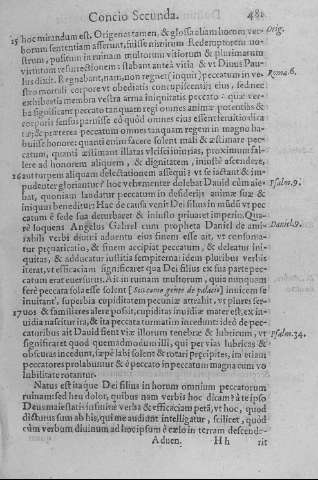 Concio Secunda. 481
15 hoc mirandum est. Origenes tamen, & glossa aliam horum ver- Orig.
borum sententiam asserunt, fuisse nimirum Redemptorem no-
strum, positum in ruinam multorum vitiorum & plurimarum
virtutum resurrectionem: stabant antea vitia & vt Diuus Pau-
lus dixit. Regnabant, nam, non regnet (inquit) peccatum in ve- Roma.6.
stro mortali corpore vt obediatis concupiscentijs eius, sed nec
exhibeatis membra vestra arma iniquitatis peccato: quæ ver-
ba significant peccato tanquam regi omnes animæ potentias &
corporis sensus paruisse eo quod omnes eius essent seruitio dica
& præterea peccatum omnes tanquam regem in magno ha-
buisse honore: quanti enim facere solent mali & æstimare pec-
catum, quanti æstimant illatas vlcisci iniurias, proximum fal-
lere ad honorem aliquem, & dignitatem, iniuste ascendere,
16 aut turpem aliquam delectationem assequi? vt se iactant & im-
pudenter gloriantur? hoc vehementer dolebat Dauid cùm aie- Psalm.9.
bat, quoniam laudatur peccator in desiderijs animæ suæ &
iniquus benedicitur: Hac de causa venit Dei filius in mũdũ vt pec
catum è sede sua deturbaret & iniusto priuaret imperio. Qua-
re loquens Angelus Gabriel cum propheta Daniel de ami- Daniel.9.
rabili verbi diuini aduentu eius finem esse ait, vt consuma-
tur præuaricatio, & finem accipiat peccatum, & deleatur ini-
quitas, & adducatur iustitia sempiterna: idem pluribus verbis
iterat, vt efficaciam significaret qua Dei filius ex sua parte pec-
catum erat euersurus. Ait in ruinam multorum, quia nunquam
ferè peccata sola esse solent
inuitant, superbia cupiditatem pecuniæ attrahit, vt plures ser-
17 uos & familiares alere possit, cupiditas inuidiæ mater est, ex in-
uidia nascitur ira, & ita peccata turmatim incedunt: ideò de pec-
catoribus ait Dauid fient viæ illorum tenebræ & lubricum, vt Psalm.34.
significaret quod quemadmodum illi, qui per vias lubricas &
obscuras incedunt, sæpè labi solent & rotari præcipites, ita etiam
peccatores prolabuntur & è peccato in peccatum magna cum vo
lubilitate rotantur.
Natus est itaque Dei filius in horum omnium peccatorum
ruinam: sed heu dolor, quibus nam verbis hoc dicam? à te ipso
Deus maiestatis infinitæ verba & efficaciam petã, vt hoc, quod
dicturus sum ab his, qui me audiunt intelligatur, scilicet, quod
cùm verbum diuinum ad hoc ipsum è cælo in terram descende-
Aduen. H h rit